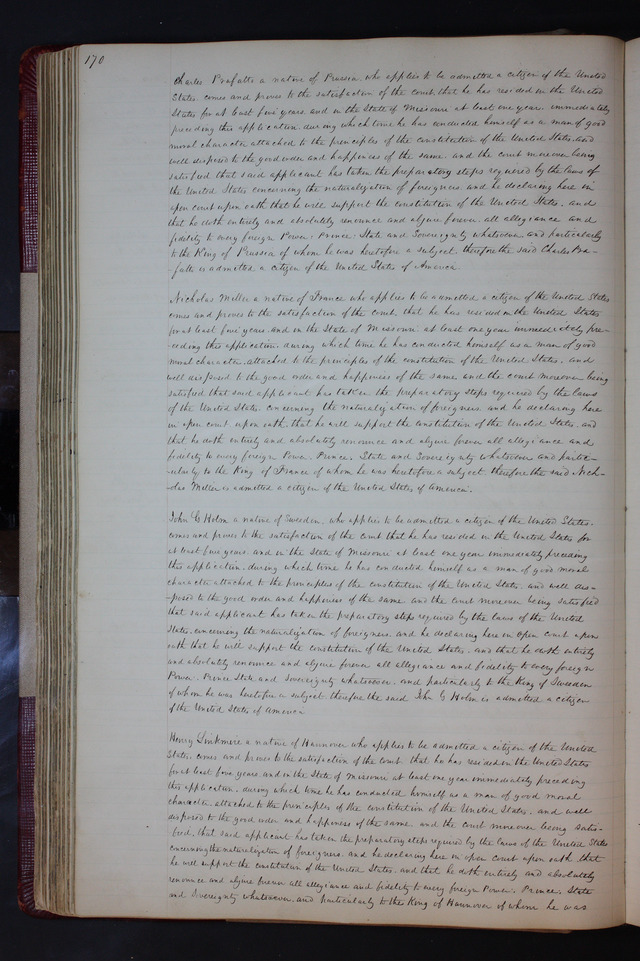 170
Charles Prafalte a native of Prussia, who applies to be admitted a citizen of the United
States. comes and proves to the satisfaction of the court, that he has resided in the United
States for at least five years. and in the State of Missouri at least one year. immediately
preceding this application. during which time he has conducted himself as a man of good
moral character attached to the principles of the constitution of the United States, and
well disposed to the good order and happiness of the same. and the court moreover being
satisfied that said applicant has taken the preparatory steps required by the laws of
the United States concerning the naturalization of foreigners. and he declaring here in
open court upon oath that he will support the constitution of the United States. and
that he doth entirely and absolutely renounce and abjure forever all allegiance and
fidelity to every foreign Power. Prince. State and Sovereignty whatsoever. and particularly
to the King of Prussia of whom he was heretofore a subject. therefore the said Charles Pra-
-falte is admitted a citizen of the United States of America
Nicholas Miller a native of France who applies to be admitted a citizen of the United States
comes and proves to the satisfaction of the court, that he has resided in the United States
for at least five years. and in the State of Missouri at least one year immediately pre-
ceeding this application. during which time he has conducted himself as a man of good
moral character. attached to the principles of the constitution of the United States. and
well disposed to the good order and happiness of the same and the court moreover being
satisfied that said applicant has taken the preparatory steps required by the laws
of the United States. concerning the naturalization of foreigners. and he declaring here
in open court upon oath. that he will support the constitution of the United States. and
that he doth entirely and absolutely renounce and abjure forever all allegiance and
fidelity to every foreign Power. Prince. State and Sovereignty whatsoever and partic-
-ularly to the King of France of whom he was heretofore a subject therefore the said Nich-
olas Miller is admitted a citizen of the United States of America.
John G Holm a native of Sweeden, who applies to be admitted a citizen of the United States.
comes and proves to the satisfaction of the court that he has resided in the United States for
at least five years. and in the State of Missouri at least one year immediately preceding
this application. during which time he has conducted himself as a man of good moral
character attached to the principles of the constitution of the United States. and well dis-
-posed to the good order and happiness of the same and the court moreover being satisfied
that said applicant has taken the preparatory steps required by the laws of the United
States. concerning the naturalization of foreigners. and he declaring here in open court upon
oath that he will support the constitution of the United States. and that he doth entirely
and absolutely renounce and abjure forever all allegiance and fidelity to every foreign
Power. Prince State and Sovereignty whatsoever. and particularly to the King of Sweeden
of whom he was heretofore a subject therefore the said John G Holm is admitted a citizen
of the United States of America
Henry Linkmire a native of Hannover who applies to be admitted a citizen of the United
States. comes and proves to the satisfaction of the court that he has resided in the United States
for at least five years and in the State of Missouri at least one year immediately preceding
this application. during which time he has conducted himself as a man of good moral
character. attached to the principles of the constitution of the United States. and well
disposed to the good order and happiness of the same. and the court moreover being satis-
-fied, that said applicant has taken the preparatory steps required by the laws of the United States
concerning the naturalization of foreigners. and he declaring here in open court upon oath that
he will support the constitution of the United States. and that he doth entirely and absolutely
renounce and abjure forever all allegiance and fidelity to every foreign Power. Prince. State
and Sovereignty whatsoever. and particularly to the King of Hannover of whom he was